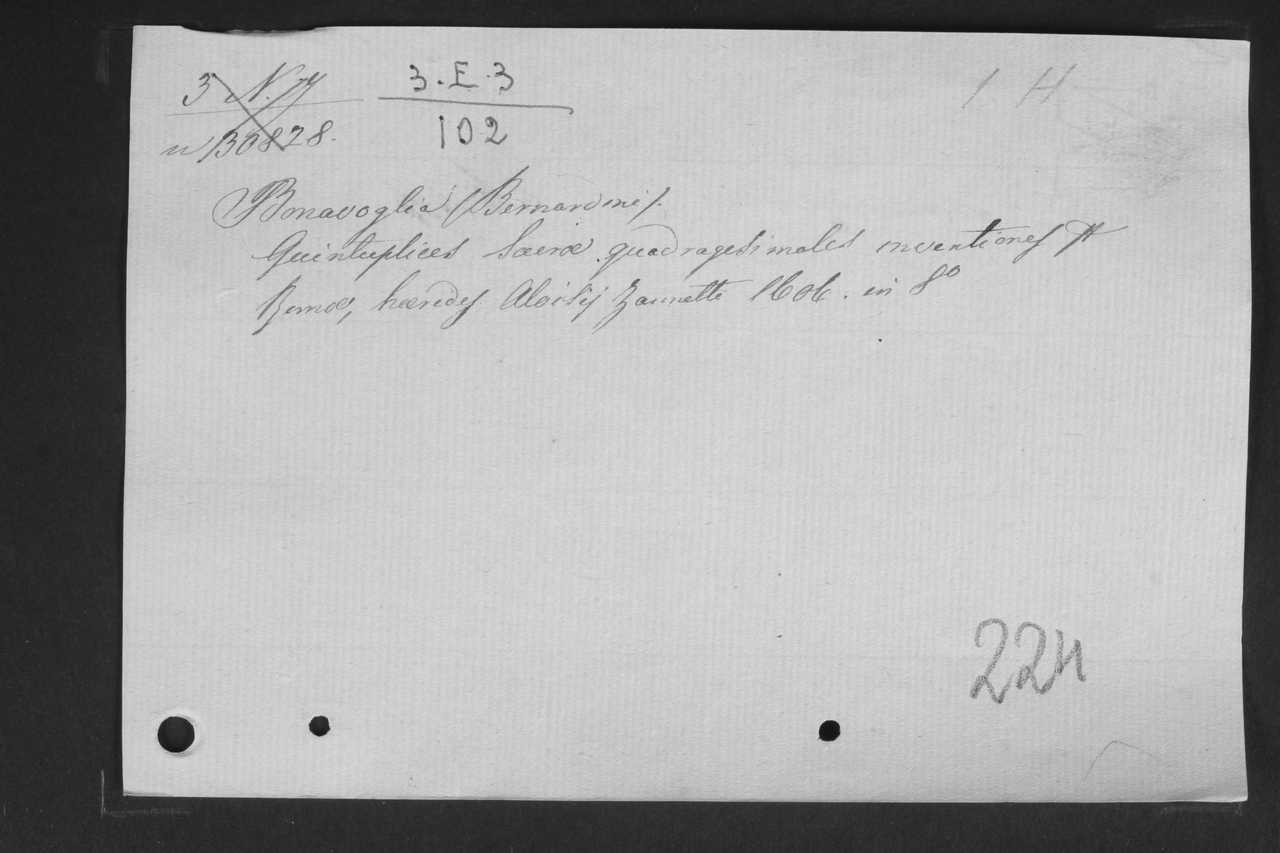 3 N. 74
3.E.3
1 H
n 130828.
102
Bonavoglia (Bernardini).
Quintuplices sacræ quadragesimales inventiones
Romæ, hæredes Aloisij Zannetti 1606. in 8º
224